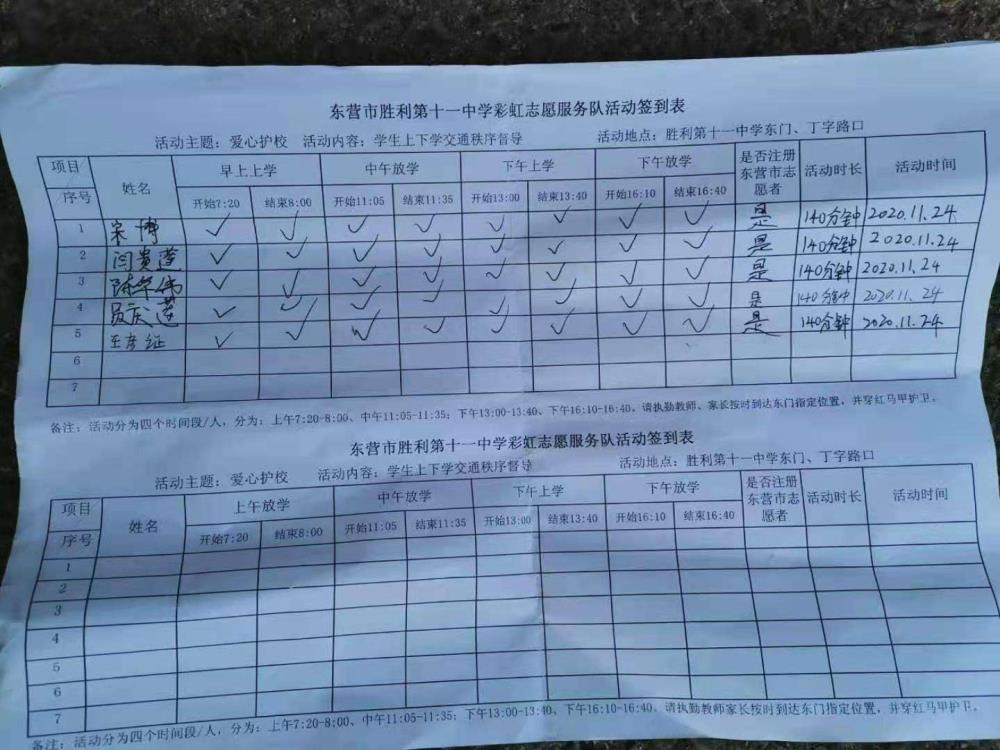 东营市胜利第十一中学彩虹志愿服务队活动签到表
活动主题：爱心护校 活动内容：学生上下学交通秩序督导 活动地点：胜利第十一中学东门、丁字路口
项目 序号 姓名 早上上学 中午放学 下午上学 下午放学 是否注册东营市志愿者 活动时长 活动时间
开始7:20 结束8:00 开始11:05 结束11:35 开始13:00 结束13:40 开始16:10 结束16:40
1 宋博 ✓ ✓ ✓ ✓ ✓ ✓ ✓ ✓ 是 140分钟 2020.11.24
2 闫贵莲 ✓ ✓ ✓ ✓ ✓ ✓ ✓ ✓ 是 140分钟 2020.11.24
3 陈华伟 ✓ ✓ ✓ ✓ ✓ ✓ ✓ ✓ 是 140分钟 2020.11.24
4 员庆莲 ✓ ✓ ✓ ✓ ✓ ✓ ✓ ✓ 是 140分钟 2020.11.24
5 王彦征 ✓ ✓ ✓ ✓ ✓ ✓ ✓ ✓ 是 140分钟 2020.11.24
6
7
备注：活动分为四个时间段/人，分为：上午7:20-8:00、中午11:05-11:35；下午13:00-13:40、下午16:10-16:40。请执勤教师、家长按时到达东门指定位置，并穿红马甲护卫。
东营市胜利第十一中学彩虹志愿服务队活动签到表
活动主题：爱心护校 活动内容：学生上下学交通秩序督导 活动地点：胜利第十一中学东门、丁字路口
项目 序号 姓名 上午放学 中午放学 下午上学 下午放学 是否注册东营市志愿者 活动时长 活动时间
开始7:20 结束8:00 开始11:05 结束11:35 开始13:00 结束13:40 开始16:10 结束16:40
1
2
3
4
5
6
7
备注：活动分为四个时间段/人，分为：上午7:20-8:00、中午11:05-11:35；下午13:00-13:40、下午16:10-16:40。请执勤教师家长按时到达东门指定位置，并穿红马甲护卫。